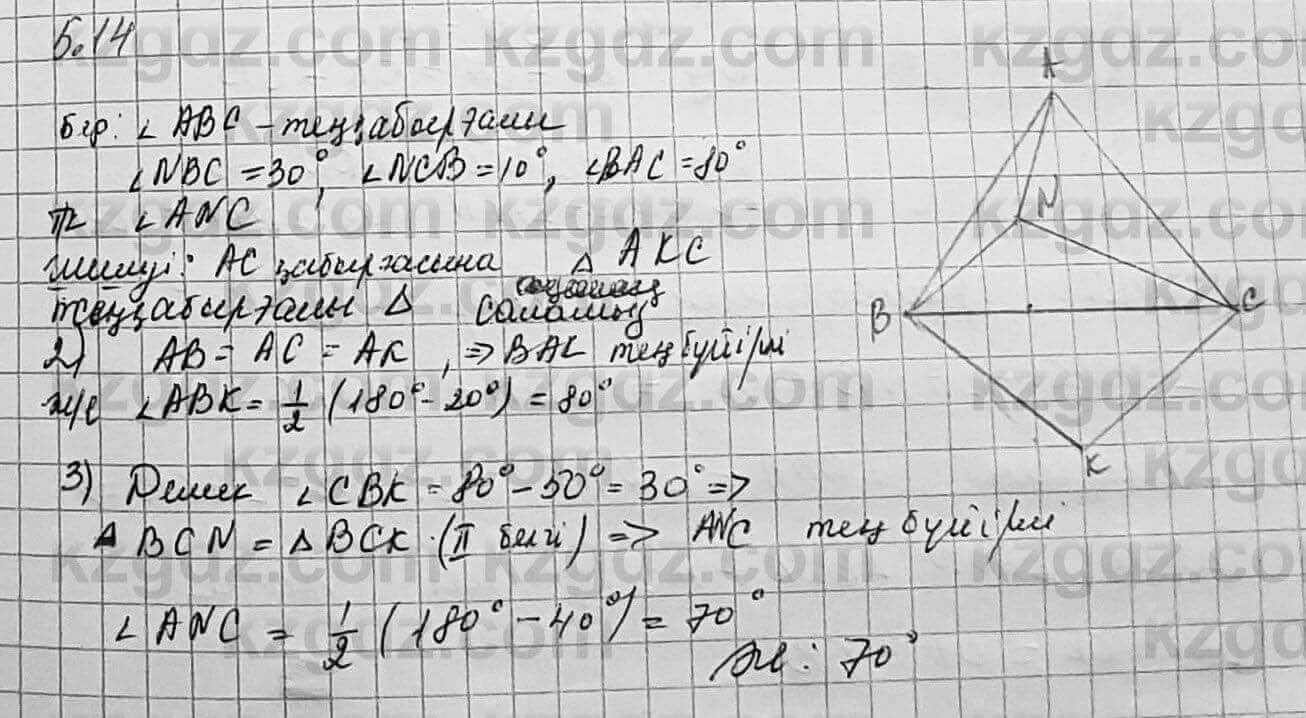 5.14
бер: ∠ABC - теңқабырғалы
∠NBC = 30°, ∠NCB = 10°, ∠BAC = 80°
т/к ∠ANC
шешуі: AC қабырғасына △ AKC
теңқабырғалы △ саламыз
2) AB = AC = AK, => BAK теңбүйірлі
ж/е ∠ABK = 1/2 (180° - 20°) = 80°
3) Демек ∠CBK = 80° - 50° = 30° =>
△ BCN = △BCK (II белгі) => ANC теңбүйірлі
∠ANC = 1/2 (180° - 40°) = 70°
Ж: 70°
A
N
B
C
K
kzgdz.com